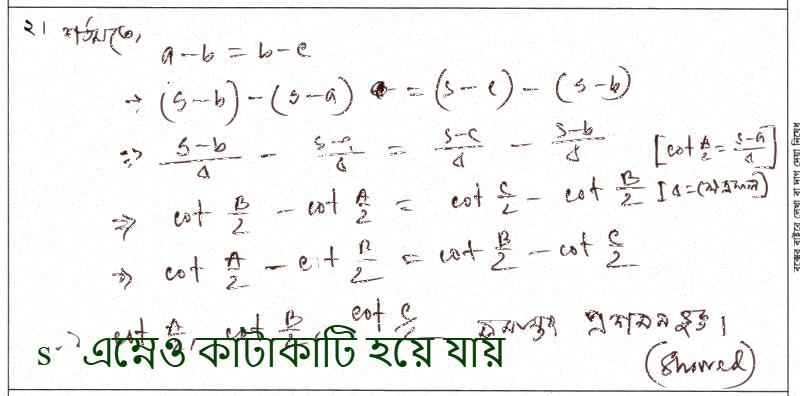 ২। শর্তমতে,
a - b = b - c
→ (s-b) - (s-a) = (s-c) - (s-b)
⇒ (s-b)/Δ - (s-a)/Δ = (s-c)/Δ - (s-b)/Δ [cot A/2 = (s-a)/Δ]
⇒ cot B/2 - cot A/2 = cot C/2 - cot B/2 [Δ = ক্ষেত্রফল]
⇒ cot A/2 - cot B/2 = cot B/2 - cot C/2
cot A/2, cot B/2, cot C/2 সমান্তর প্রগমনভুক্ত।
s এম্নেও কাটাকাটি হয়ে যায়
(Showed)